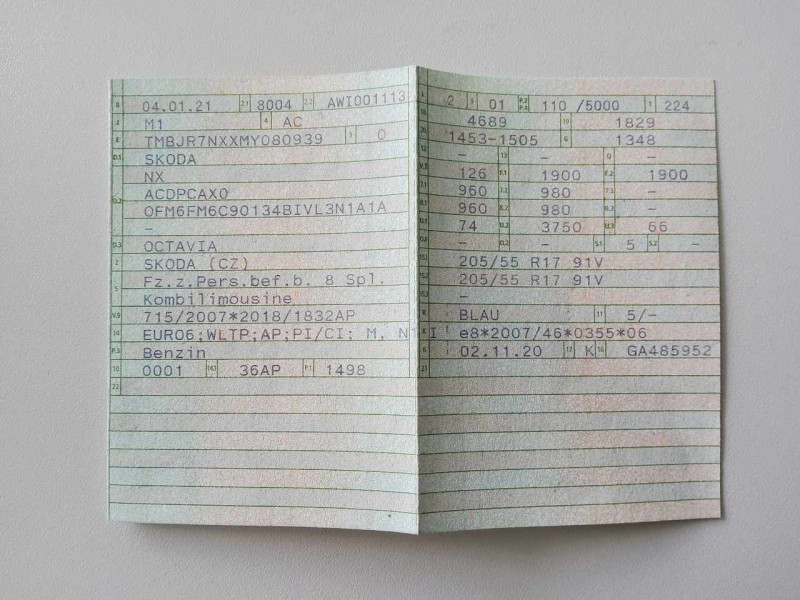 B 04.01.21 2.1 8004 2.2 AWI001113
J M1 4 AC
E TMBJR7NXXMY080939 3 0
D.1 SKODA
NX
D.2 ACDPCAX0
OFM6FM6C90134BIVL3N1A1A
–
D.3 OCTAVIA
2 SKODA (CZ)
5 Fz.z.Pers.bef.b. 8 Spl.
Kombilimousine
V.9 715/2007*2018/1832AP
14 EURO6;WLTP;AP;PI/CI; M, N1 I
P.3 Benzin
10 0001 14.1 36AP P.1 1498
22
L 2 9 01 P.2 P.4 110 /5000 T 224
18 4689 19 1829
20 1453-1505 G 1348
12 – 13 – Q –
V.7 126 F.1 1900 F.2 1900
7.1 960 7.2 980 7.3 –
8.1 960 8.2 980 8.3 –
U.1 74 U.2 3750 U.3 66
O.1 – O.2 – S.1 5 S.2 –
15.1 205/55 R17 91V
15.2 205/55 R17 91V
15.3 –
R BLAU 11 5/–
K e8*2007/46*0355*06
6 02.11.20 17 K 16 GA485952
21